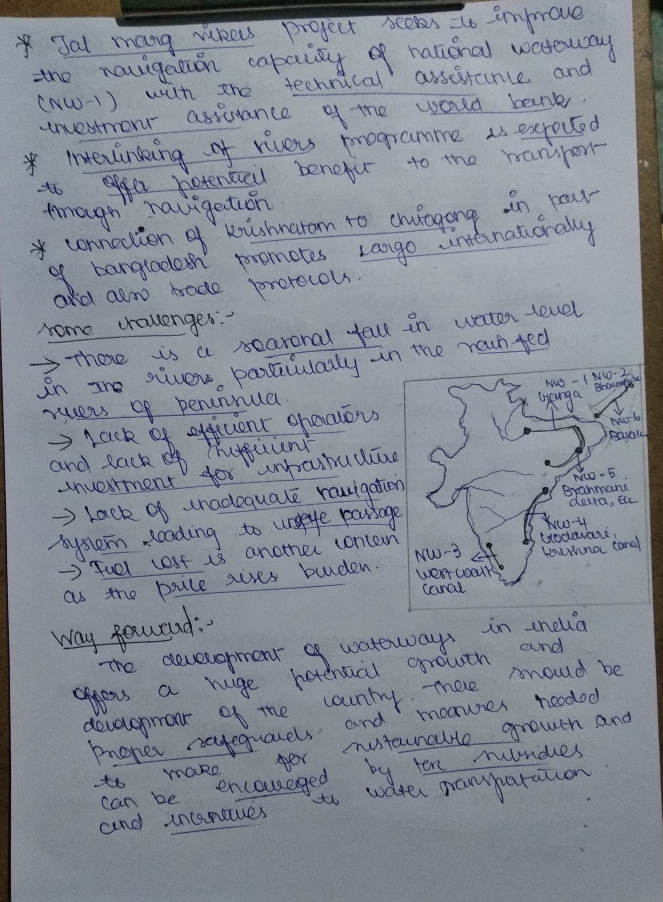 * Jal marg vikas project seeks to improve
the navigation capacity of national waterway
(NW-1) with the technical assistance and
investment assistance of the world bank.
* Interlinking of rivers programme is expected
to offer potential benefit to the transport
through navigation.
* connection of to chittagong in part
of bangladesh promotes cargo internationally
and also trade protocols.
some challenges:-
→ There is a seasonal fall in water level
in the rivers particularly in the rainfed
rivers of peninsula.
→ Lack of efficient operators
and lack of
investment for infrastructure
→ Lack of inadequate navigation
system leading to unsafe passage
→ Fuel cost is another concern
as the price rises burden.
NW-1
Ganga
NW-2
NW-6
NW-5
Brahmani
delta, Ec
NW-4
Godavari,
krishna canal
NW-3
west coast
canal
Way forward:-
The development of waterways in india
offers a huge potential growth and
development of the country. There should be
Proper safeguards and measures needed
to make for sustainable growth and
can be encouraged by subsidies
and incentives to water transportation